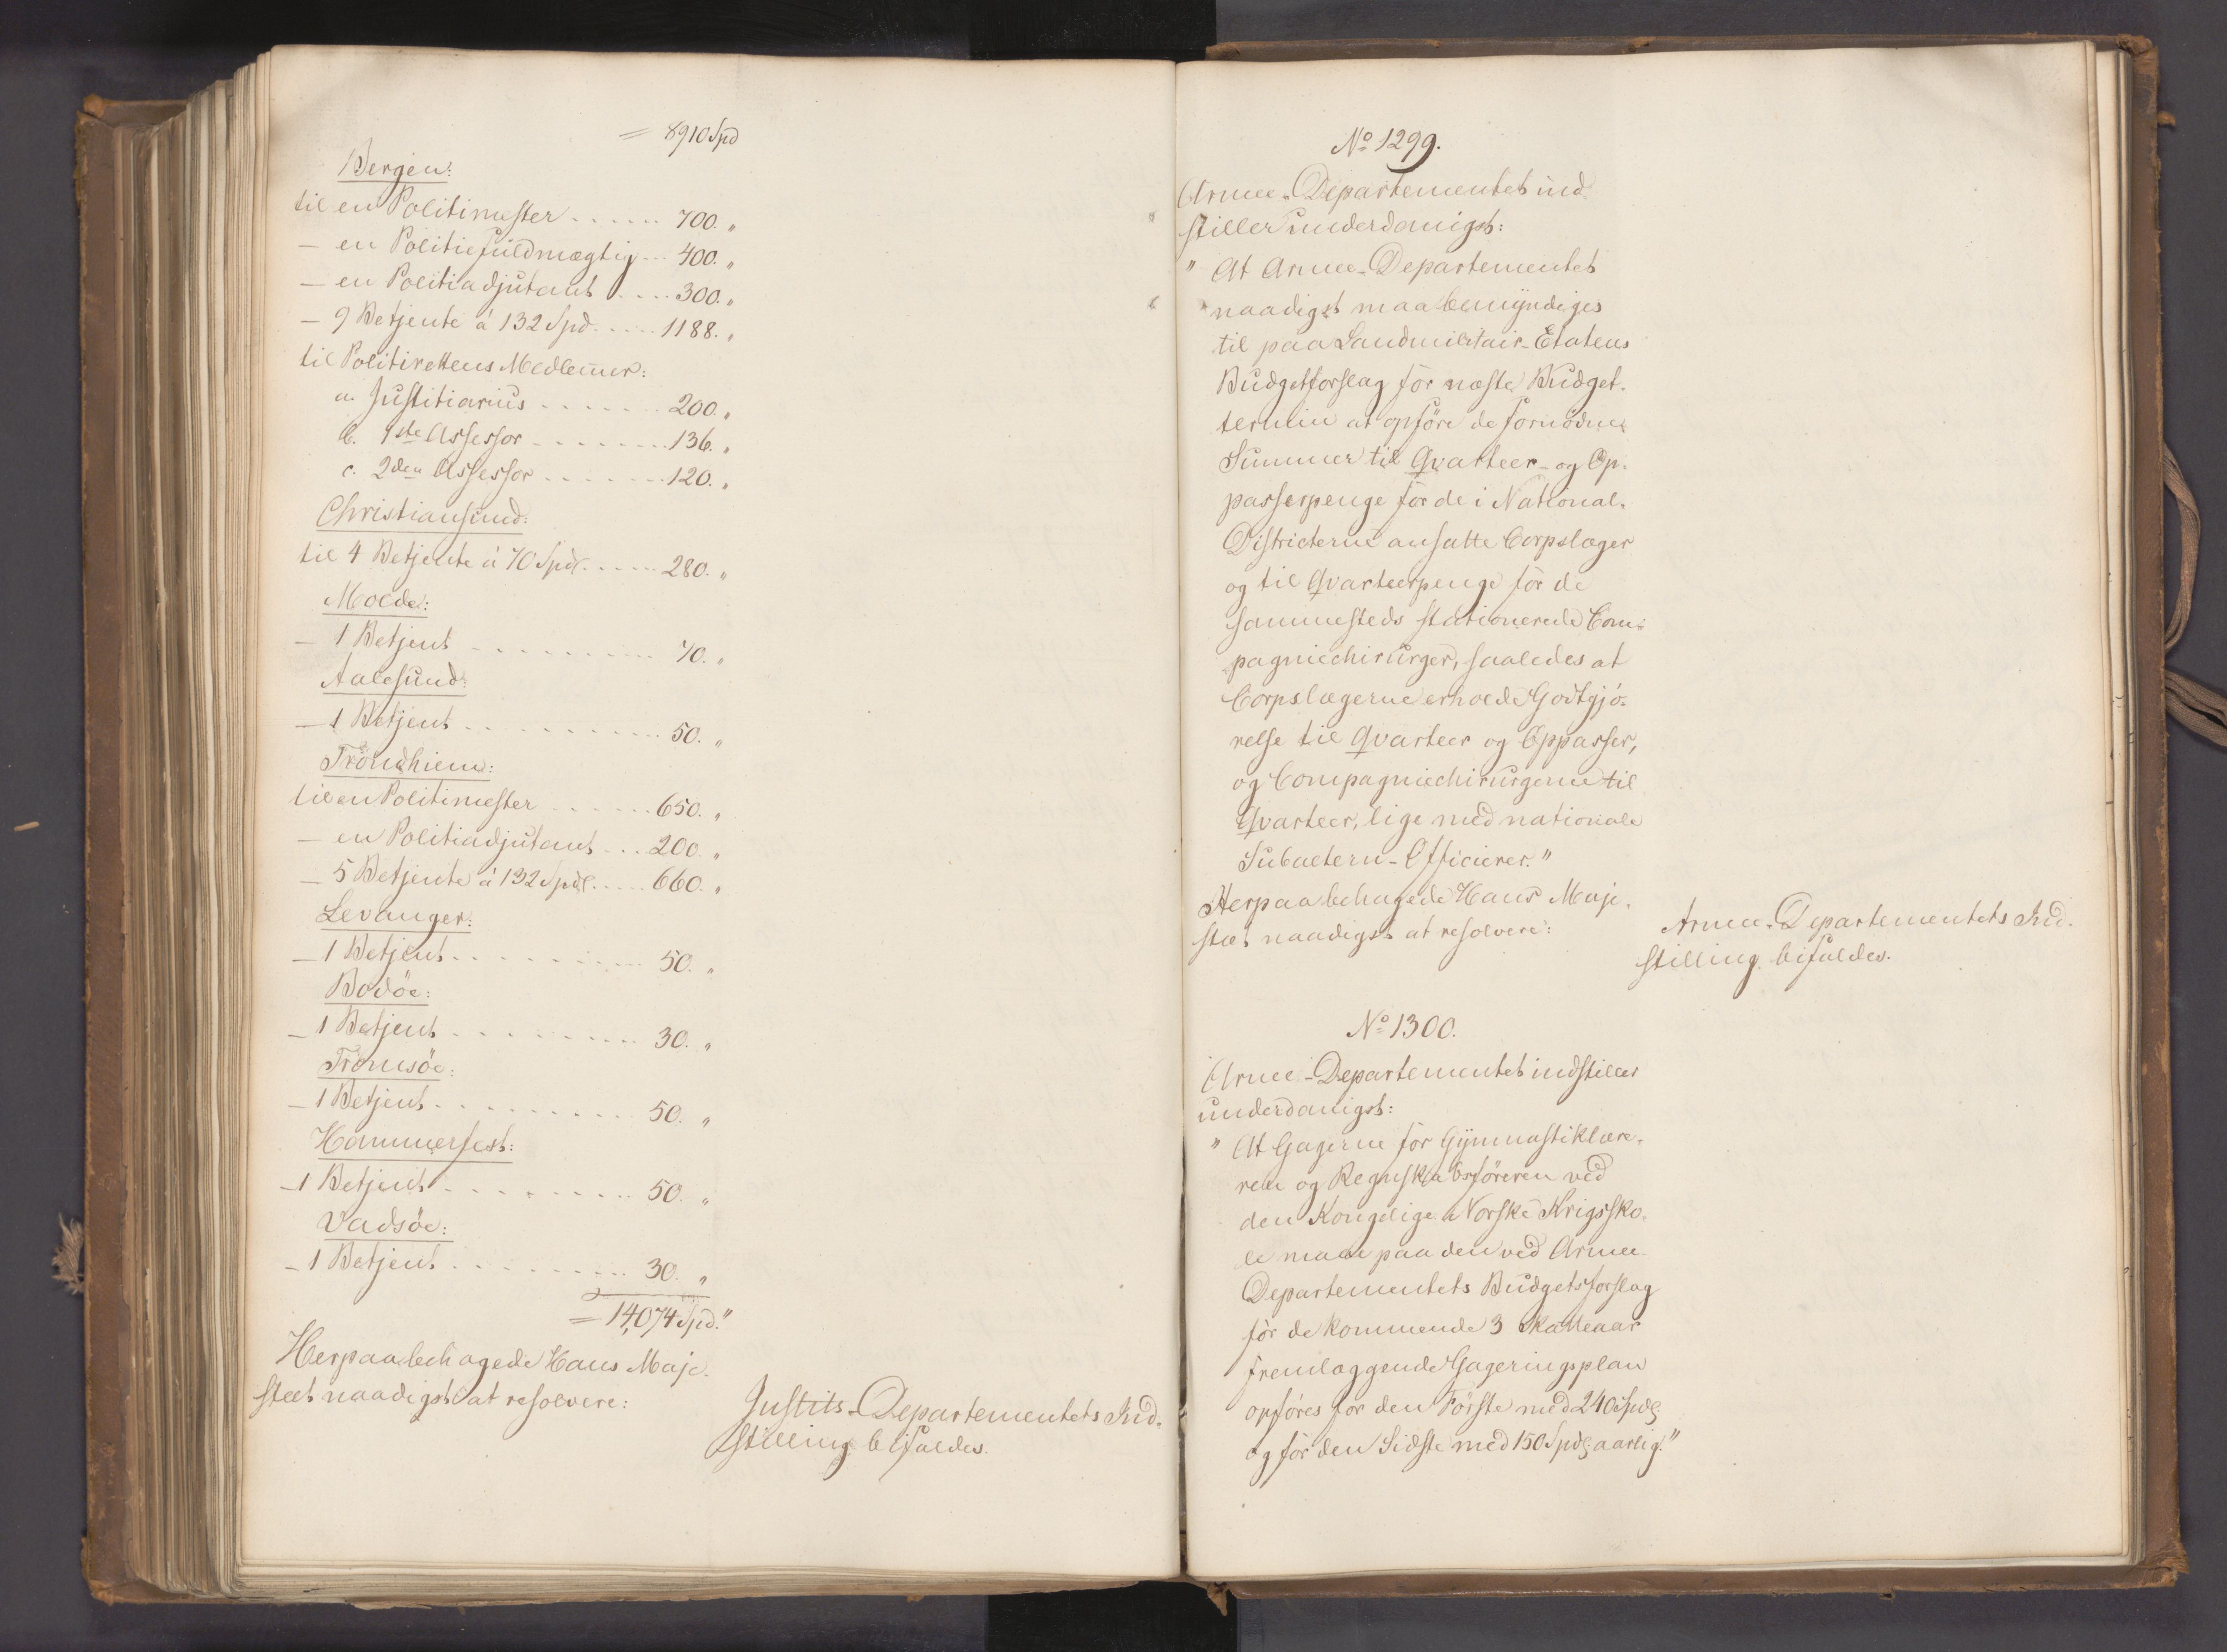 = 8910 Spd
Bergen:
til en Politimester . . . . . . 700. "
— en Politiefuldmægtig . . . 400. "
— en Politiadjutant . . . . . 300. "
— 9 Betjente á 132 Spd. . . . . . 1188. "
til Politirettens Medlem̄er:
a. Justitiarius . . . . . . . 200. "
b. 1ste Assessor . . . . . . . . 136. "
c. 2den Assessor . . . . . . . 120. "
Christiansund:
til 4 Betjente á 70 Spd. . . . . . 280. "
Molde:
— 1 Betjent . . . . . . . . . . 70. "
Aalesund:
— 1 Betjent . . . . . . . . . . 50. "
Trondhiem:
til en Politimester . . . . . . 650. "
— en Politiadjutant . . . 200. "
— 5 Betjente á 132 Spd. . . . . 660. "
Levanger:
— 1 Betjent . . . . . . . . . . 50. "
Bodöe:
— 1 Betjent . . . . . . . . . . 30. "
Tromsöe:
— 1 Betjent . . . . . . . . . . 50. "
Hammerfest:
— 1 Betjent . . . . . . . . . . 50. "
Vadsöe:
— 1 Betjent . . . . . . . . . 30. "
= 14,074 Spd."
Herpaa behagede Hans Maje-
stæt naadigst at resolvere:
Justits-Departementets Ind-
stilling bifaldes.
No 1299.
Armee-Departementet ind-
stiller underdanigst:
" At Armee-Departementet
naadigst maa bemyndiges
til paa Landmilitair-Etatens
Budgetforslag for næste Budget-
termin at opføre de fornødne
Summer til Qvarteer- og Op-
passerpenge for de i National-
Districterne ansatte Corpslæger
og til Qvarteerpenge for de
sammesteds stationerede Com-
pagniechirurger, saaledes at
Corpslægerne erholde Godtgjö-
relse til Qvarteer og Oppasser,
og Compagniechirurgerne til
Qvarteer, lige med nationale
Subaltern-Officierer."
Herpaa behagede Hans Maje-
stæt naadigst at resolvere:
Armee-Departementets Ind-
stilling bifaldes.
No 1300.
Armee-Departementet indstiller
underdanigst:
" At Gagerne for Gymnastiklære-
ren og Regnskabsføreren ved
den Kongelige Norske Krigssko-
le maae paa den ved Armee-
Departementets Budgetsforslag
for de kommende 3 Skatteaar
fremlæggende Gageringsplan
opføres for den Første med 240 Spd.
og for den Sidste med 150 Spd. aarlig."